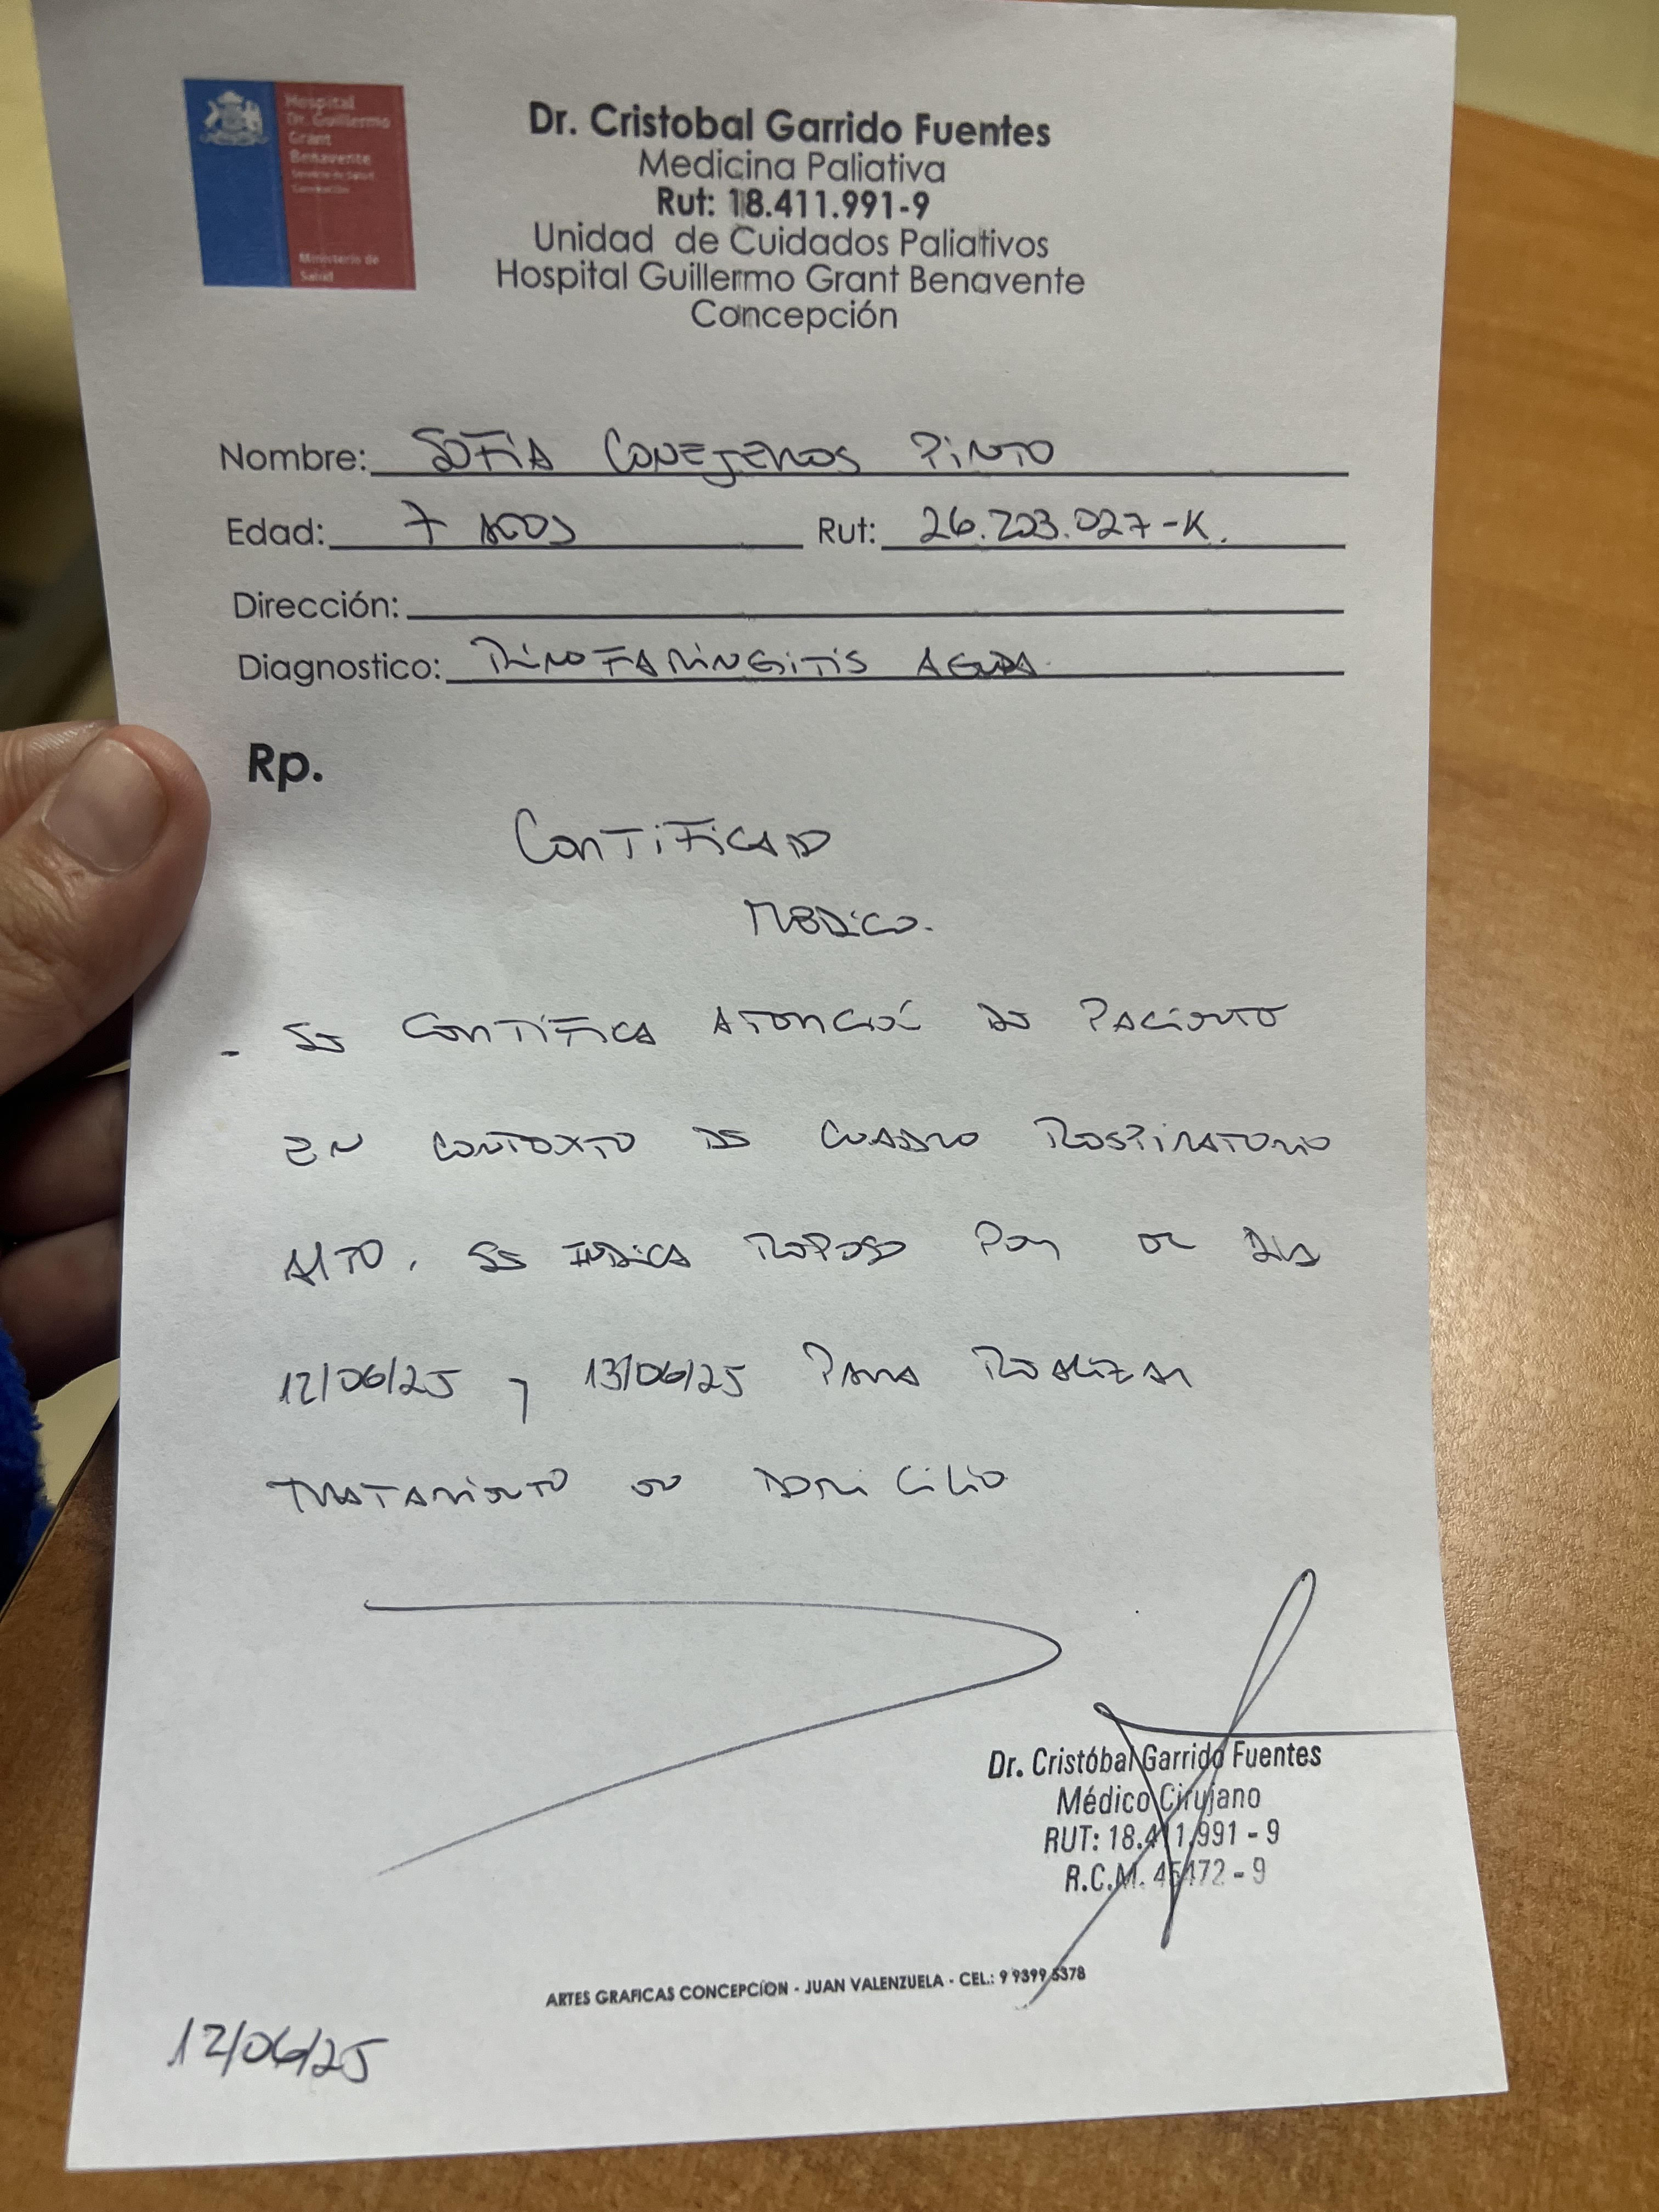 Hospital
Dr. Guillermo
Grant
Benavente
Servicio de Salud
Concepción
Ministerio de
Salud
Dr. Cristobal Garrido Fuentes
Medicina Paliativa
Rut: 18.411.991-9
Unidad de Cuidados Paliativos
Hospital Guillermo Grant Benavente
Concepción
Nombre: SOFIA CONEJEROS PINTO
Edad: 7 AÑOS Rut: 26.203.027-K.
Dirección:
Diagnostico: RINOFARINGITIS AGUDA.
Rp.
CERTIFICADO
MEDICO.
- SE CERTIFICA ATENCIÓN DE PACIENTE
EN CONTEXTO DE CUADRO RESPIRATORIO
ALTO. SE INDICA REPOSO POR EL DIA
12/06/25 y 13/06/25 PARA REALIZAR
TRATAMIENTO EN DOMICILIO
Dr. Cristóbal Garrido Fuentes
Médico Cirujano
RUT: 18.411.991 - 9
R.C.M. 45472 - 9
ARTES GRAFICAS CONCEPCIÓN - JUAN VALENZUELA - CEL.: 9 9399 5378
12/06/25